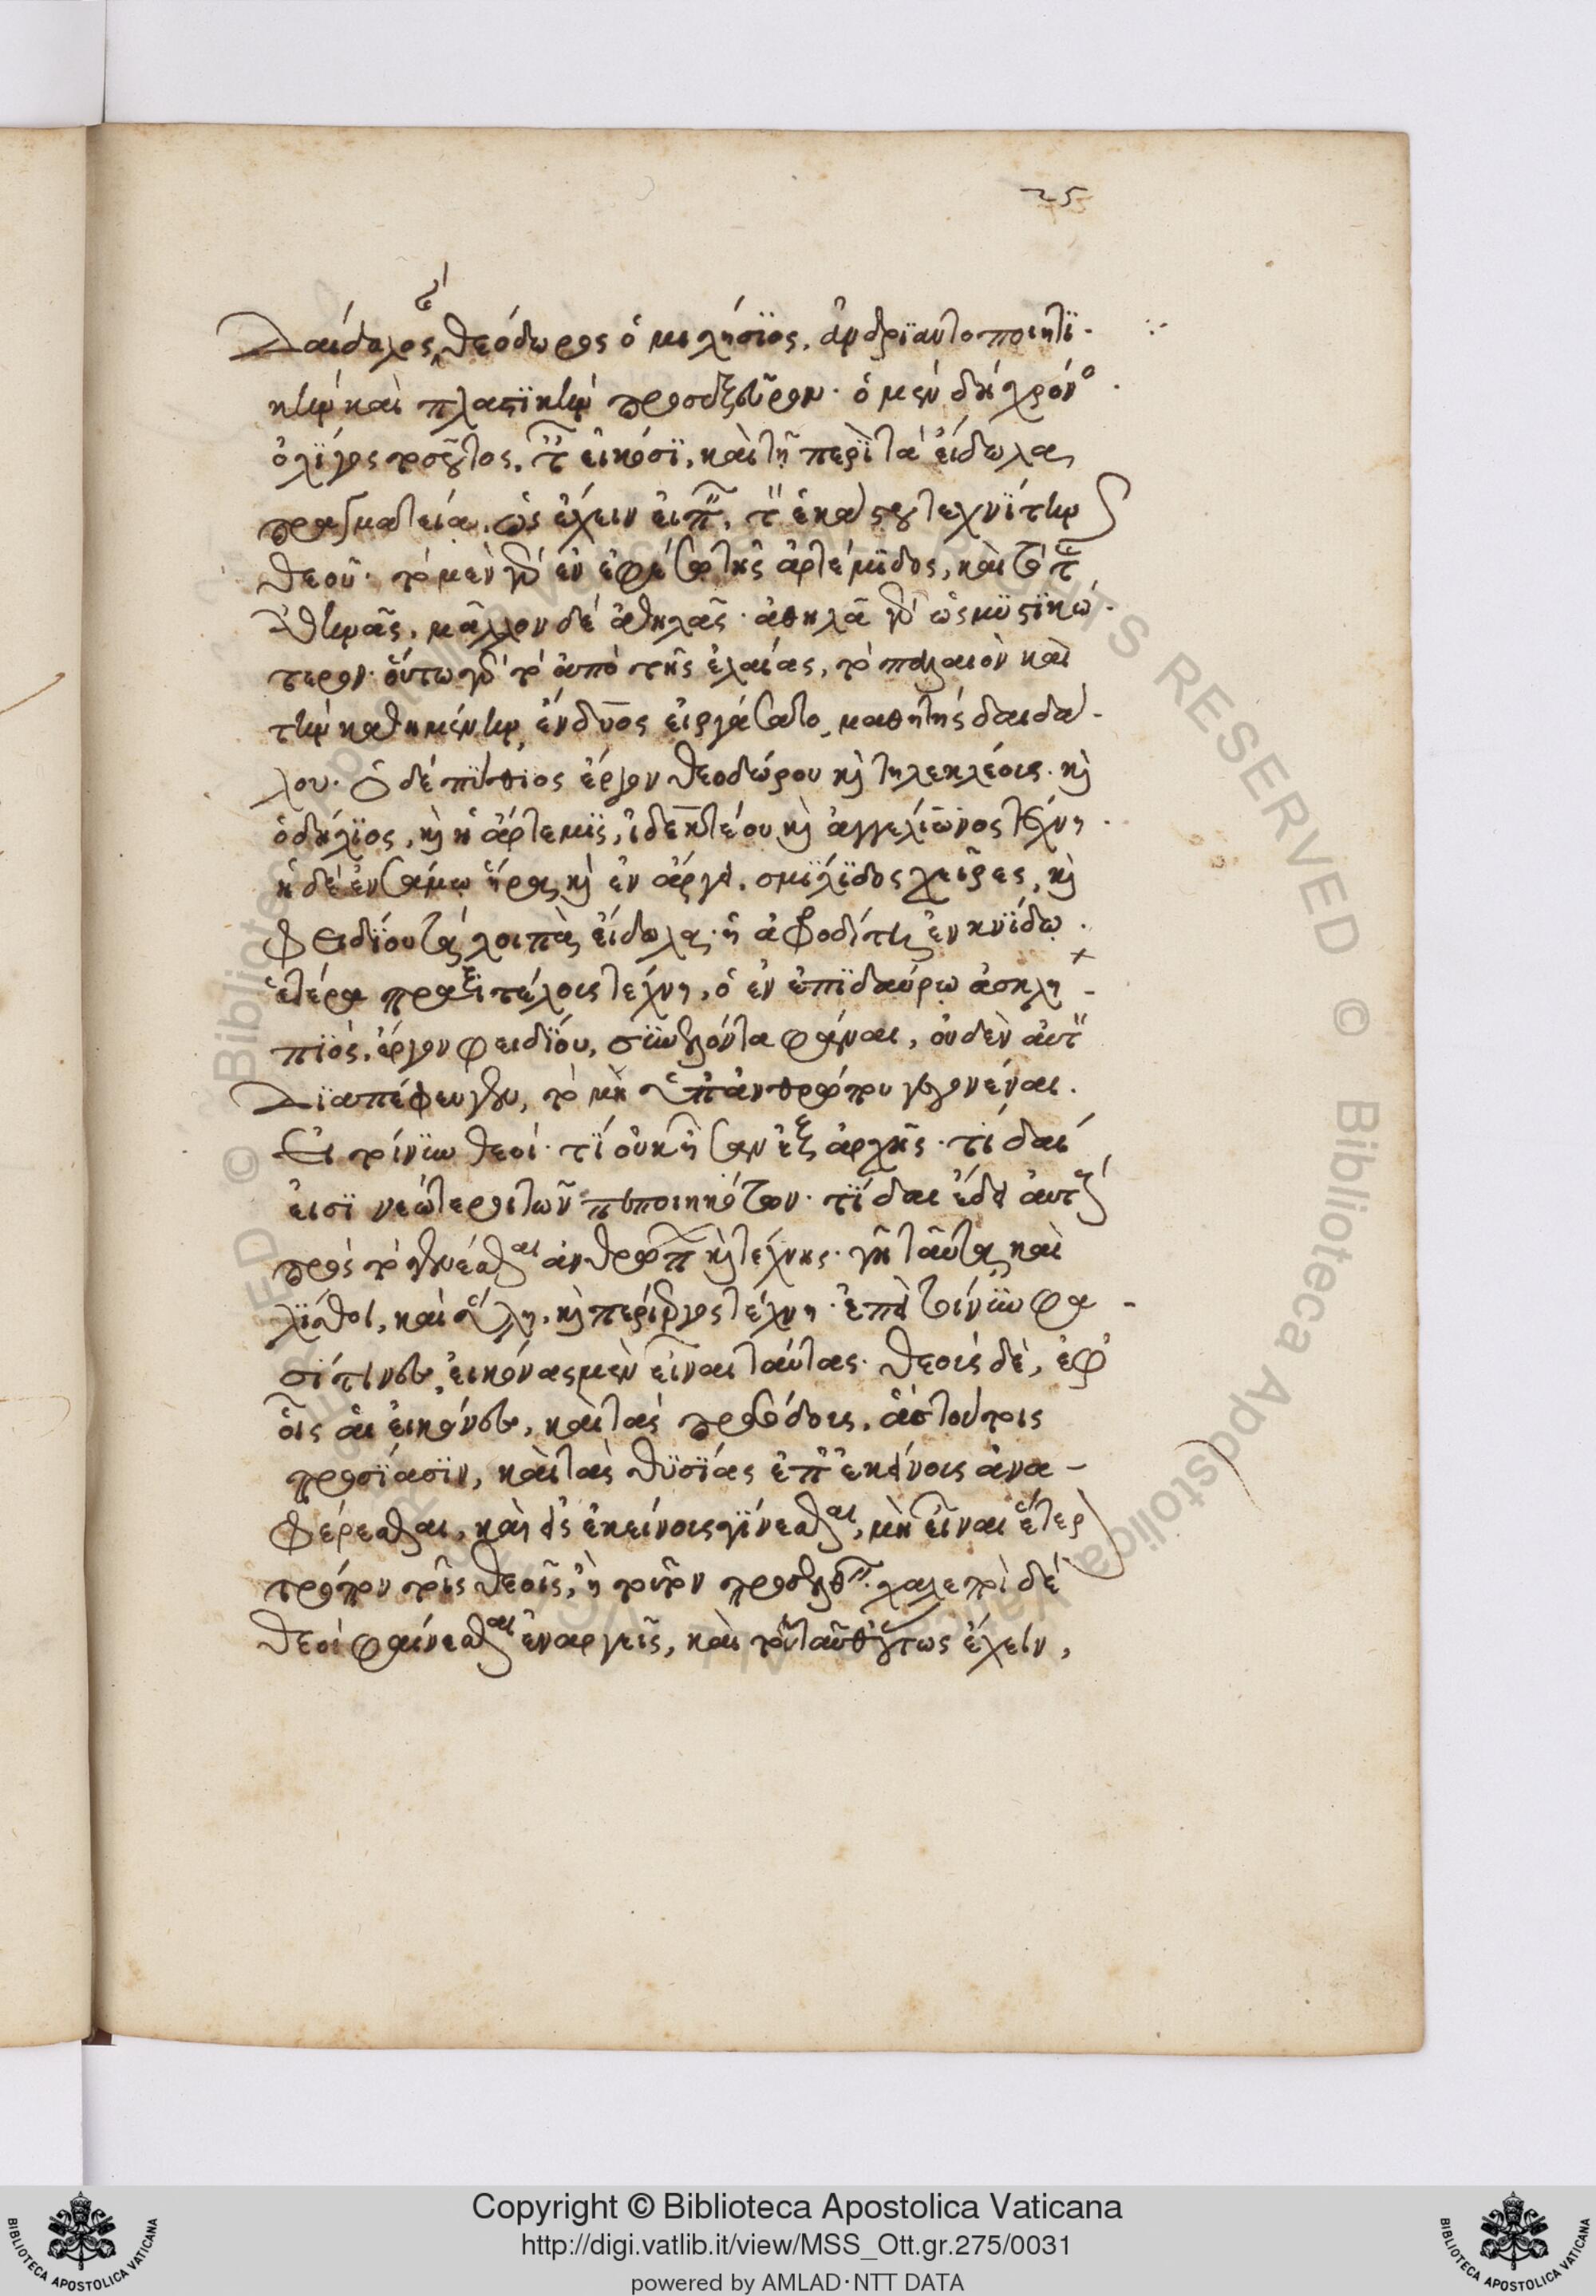 25
Δαίδαλος καὶ θεόδωρος ὁ μιλήσϊος, ἀνδρϊαντοποιητϊ-
κὴν καὶ πλαστϊκὴν προσεξεῦρον· ὁ μὲν δὴ χρόνο
ὀλίγος τοσοῦτος, ταῖς εἰκόσϊ, καὶ τῇ περὶ τὰ εἴδωλα
πραγματεία, ὡς ἔχειν εἰπεῖν, τὸν ἑκάστου τεχνίτην
θεοῦ· τὸ μὲν γὰρ ἐν ἐφέσω τῆς ἀρτέμϊδος, καὶ τὸ τῆς
ἀθηνᾶς, μᾶλλον δὲ ἀθηλᾶς· ἀθηλᾶ γὰρ ὡς μυστϊκώ-
τερον· οὕτω γὰρ τὸ ἀπὸ τῆς ἐλαίας, τὸ παλαιὸν καὶ
τὴν καθημένην, ἔνδυος εἰργάσατο, μαθητὴς δαιδά-
λου· ὁ δὲ πύθϊος ἔργον θεοδώρου καὶ τηλεκλέους· καὶ
ὁ δήλϊος, καὶ ἡ ἄρτεμϊς, ἰδεκτέου καὶ ἀγγελίωνος τέχνη·
ἡ δὲ ἐν σάμω ἥρα καὶ ἐν ἄργει, σμϊλϊδος χεῖρες, καὶ
φειδΐου τὰ λοιπὰ εἴδωλα· ἡ ἀφροδίτη ἐν κνϊδω·
ἑτέρα πραξιτέλους τέχνη, ὁ ἐν ἐπϊδαύρω ἀσκλη-
πϊός, ἔργον φειδΐου, συνελόντα φάναι, οὐδὲν αὐτῶν
διαπέφευγεν, τὸ μὴ ὑπ' ἀνθρώπου γεγονέναι.
Εἰ τοίνυν θεοί· τί οὐκ ἦσαν ἐξ ἀρχῆς· τί δαί
εἰσϊ νεώτεροι τῶν πεποιηκότων· τί δαι ἔδει αὐτοῖς
πρὸς τὸ γενέσθαι ἀνθρώπων καὶ τέχνης· γῆ ταῦτα καὶ
λίθοι, καὶ ὕλη, καὶ περίεργος τέχνη· ἐπεὶ τοίνυν φα-
σί τινες, εἰκόνας μὲν εἶναι ταύτας· θεοὺς δὲ, ἐφ'
οἷς αἱ εἰκόνες, καὶ τὰς προσόδους, ἃς τούτοις
προσίασϊν, καὶ τὰς θυσϊας ἐπ' ἐκείνους ἀνα-
φέρεσθαι, καὶ εἰς ἐκείνους γίνεσθαι, μὴ εἶναι ἕτερον
τρόπον τοῖς θεοῖς, ἢ τοῦτον προσελθεῖν· χαλεποὶ δὲ
θεοὶ φαίνεσθαι ἐναργεῖς, καὶ τοῦ ταῦθ' οὕτως ἔχειν,
Copyright © Biblioteca Apostolica Vaticana
http://digi.vatlib.it/view/MSS_Ott.gr.275/0031
powered by AMLAD·NTT DATA